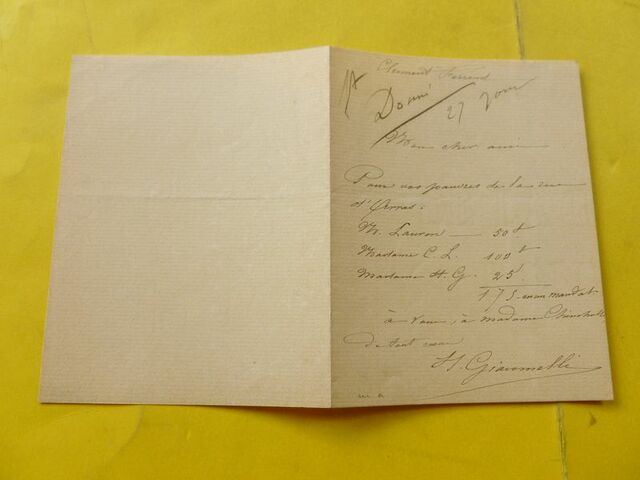 Clermont Ferrand
Donné
27
Mon cher ami
Pour vos pauvres de la rue
d'Arras:
M. Lauron — 50 f
Madame C. L. 100 f
Madame H. G. 25
175 en un mandat
à vous, à Madame
de tout cœur
H. Giacomelli